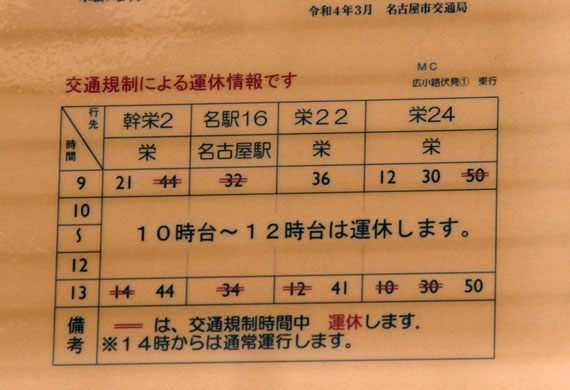 令和4年3月 名古屋市交通局
MC
広小路伏見① 東行
交通規制による運休情報です
行先 幹栄2 名駅16 栄22 栄24
時間 栄 名古屋駅 栄 栄
9 21 44 32 36 12 30 50
10
~ 10時台~12時台は運休します。
12
13 14 44 34 12 41 10 30 50
備考 ══ は、交通規制時間中 運休します.
※14時からは通常運行します。